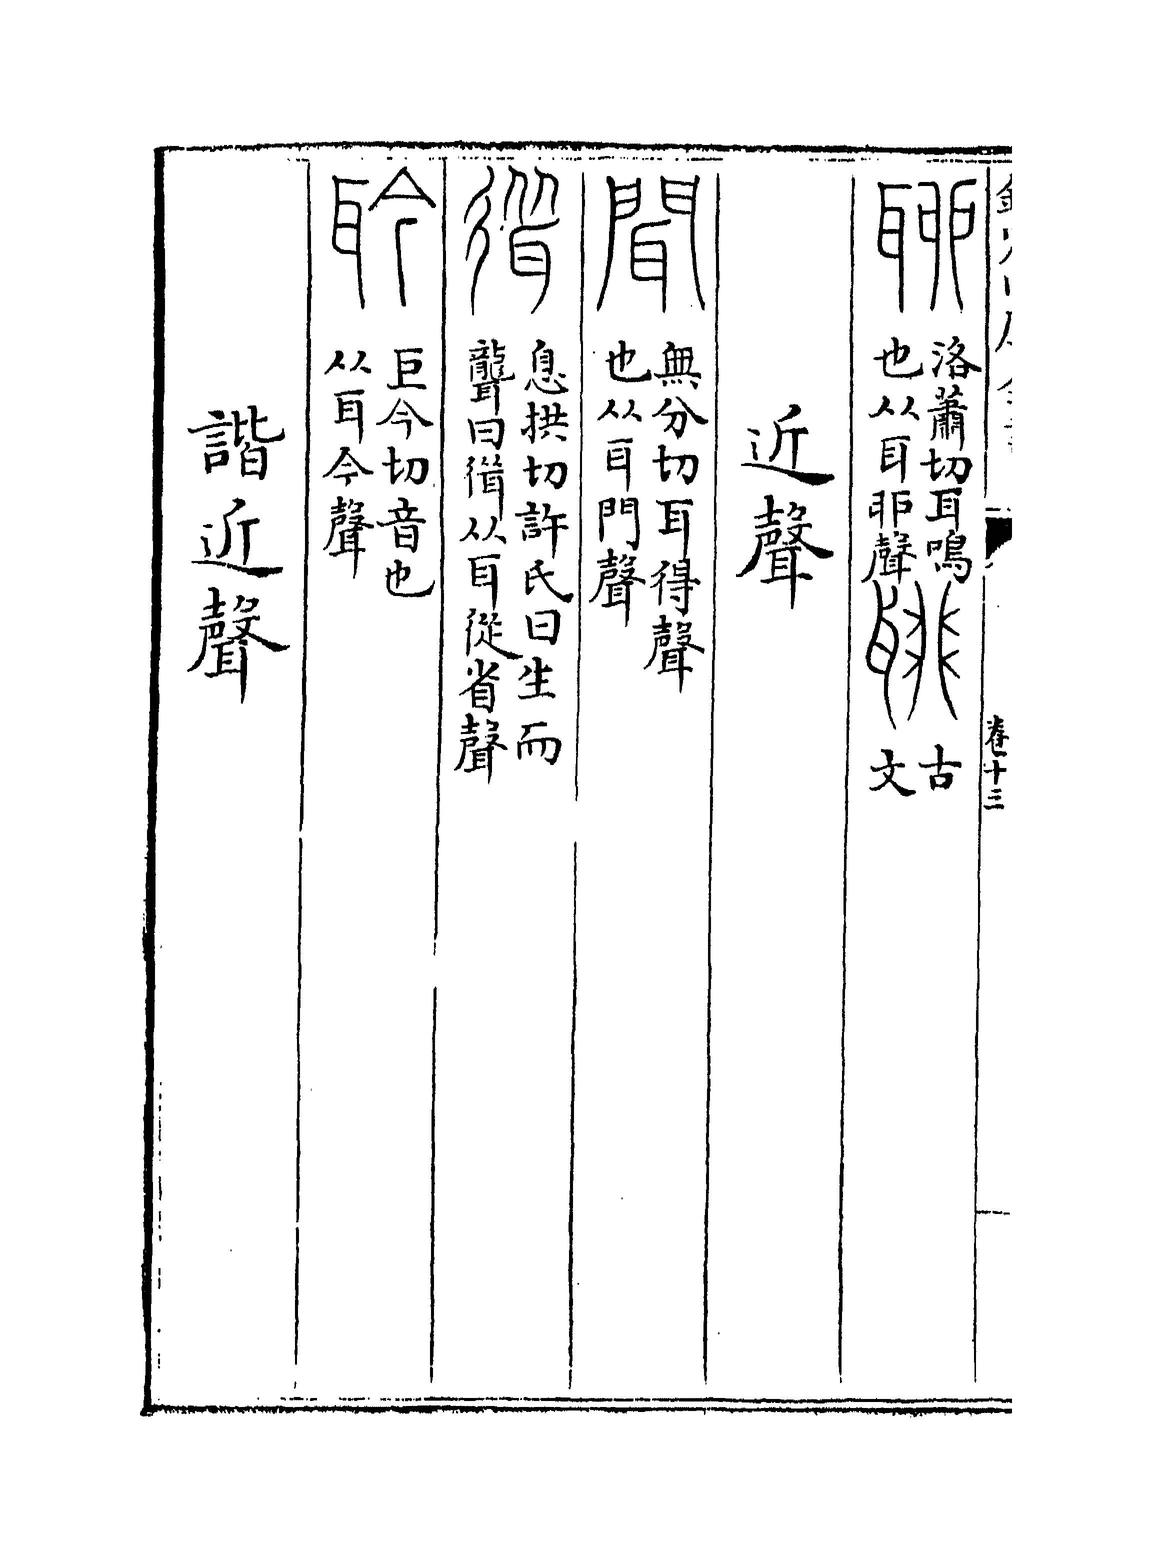 卷十三
聊 洛蕭切耳鳴
也从耳戼聲
古
文
近聲
聞 無分切耳得聲
也从耳門聲
聳 息拱切許氏曰生而
聾曰聳从耳從省聲
聆 巨今切音也
从耳今聲
諧近聲